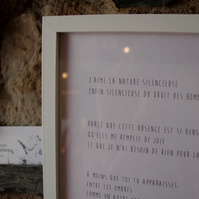 J'AIME LA NATURE SILENCIEUSE
ENFIN SILENCIEUSE DU BRUIT DES HOMM
PARCE QUE CETTE ABSENCE EST SI DENS
QU'ELLE ME REMPLIT DE JOIE
ET QUE JE N'AI BESOIN DE RIEN POUR LA
A MOINS QUE TOI TU APPARAISSES
ENTRE LES OMBRES
COMME UN